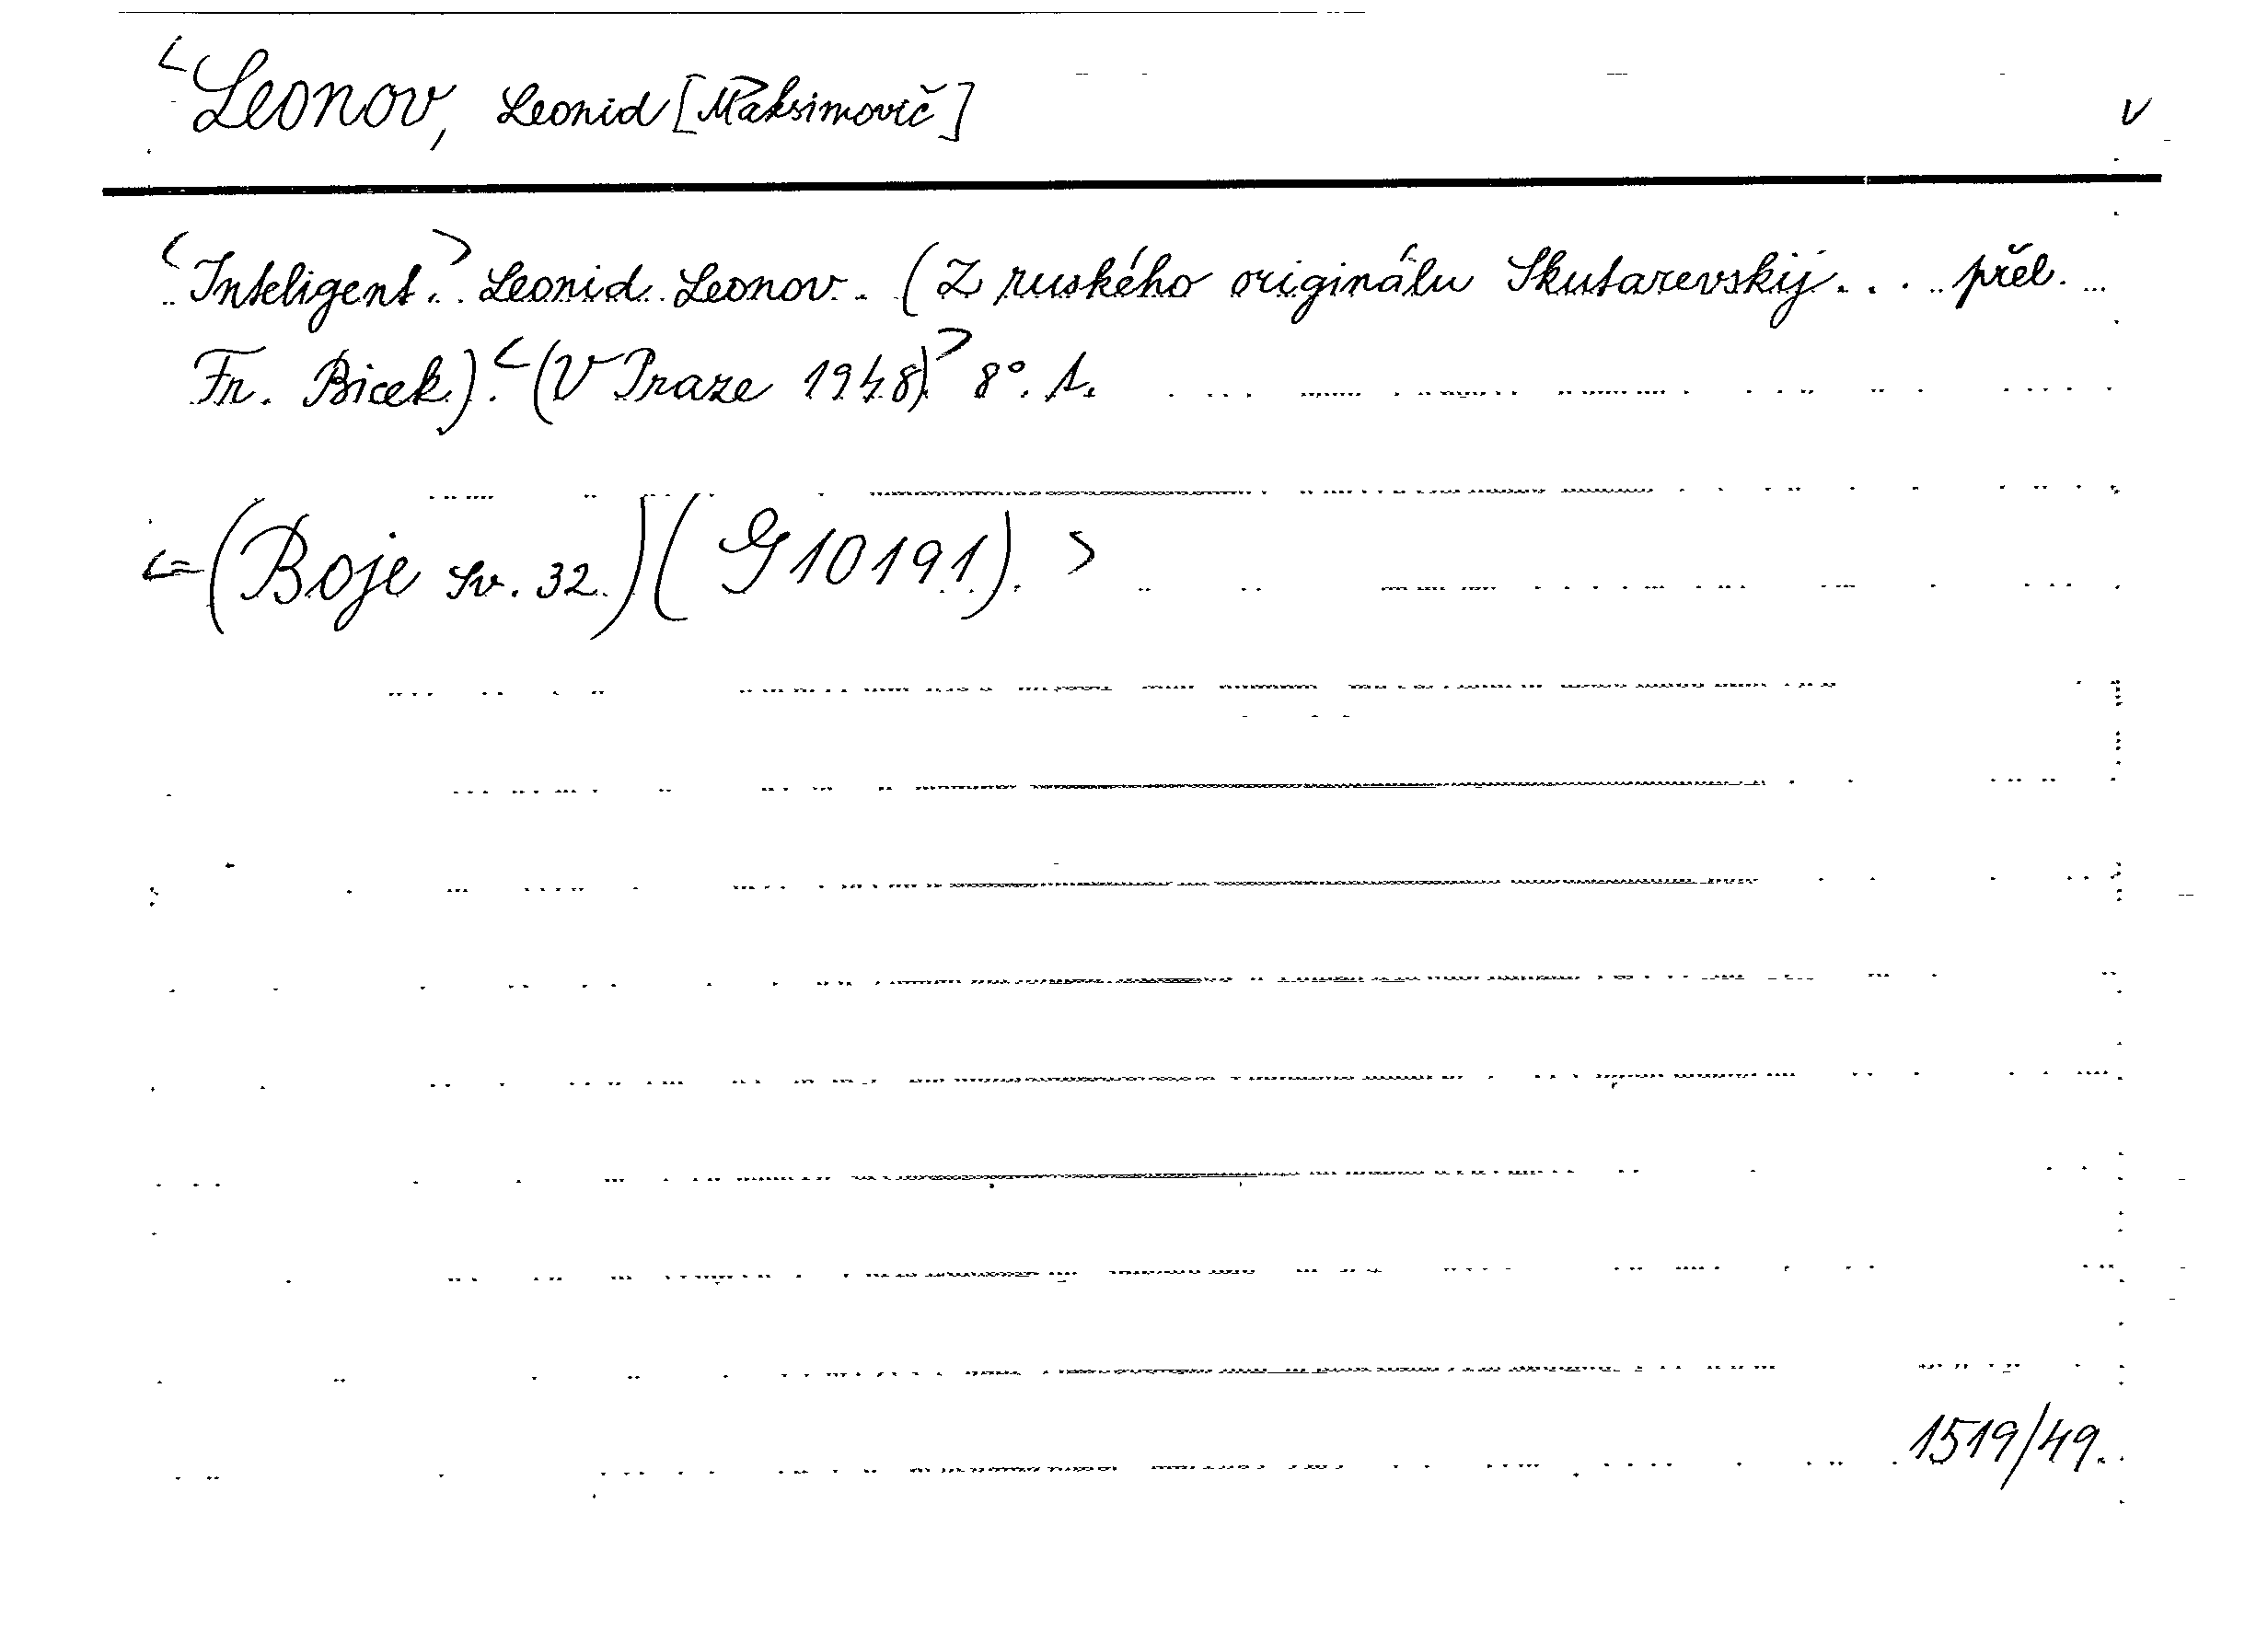 <Leonov, Leonid [Maksimovič] v
<Inteligent.> Leonid Leonov. (Z ruského originálu Skutarevskij... přel.
Fr. Bicek). <(V Praze 1948).> 8°. 1.
<=(Boje sv. 32.)(G10191).>
1519/49.